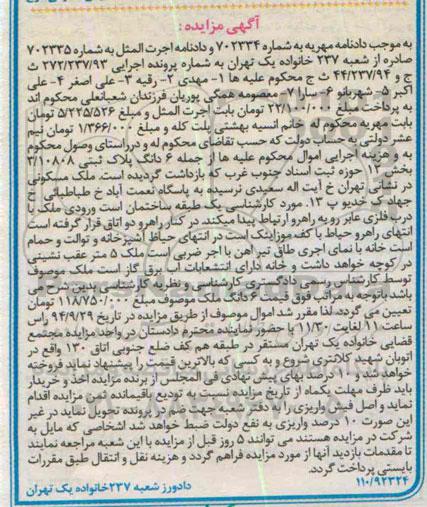 آگهی مزایده :
به موجب دادنامه مهریه به شماره ۷۰۲۳۳۴ و دادنامه اجرت المثل به شماره ۷۰۲۳۳۵
صادره از شعبه ۲۳۷ خانواده یک تهران به شماره پرونده اجرایی ۲۷۲/۲۳۷/۹۳ ث
ج و ۴۴/۲۳۷/۹۴ ث ج محکوم علیه ها ۱- مهدی ۲- رقیه ۳- علی اصغر ۴- علی
اکبر ۵- شهربانو ۶- سارا ۷- معصومه همگی پوریان فرزندان شعبانعلی محکوم اند
به پرداخت مبلغ ۲۲/۱۰۰/۰۰۰ تومان بابت اجرت المثل و مبلغ ۵/۲۲۵/۵۲۶ تومان
بابت مهریه محکوم له خانم انسیه بهشتی پلت کله و مبلغ ۱/۳۶۶/۰۰۰ تومان نیم
عشر دولتی به حساب دولت که حسب تقاضای محکوم له و در راستای وصول محکوم
به و هزینه اجرایی اموال محکوم علیه ها از جمله ۶ دانگ پلاک ثبتی ۳/۱۰۸۰۸
بخش ۱۲ حوزه ثبت اسناد جنوب غرب که بازداشت گردیده است. ملک مسکونی
در نشانی تهران خ آیت اله سعیدی نرسیده به پاسگاه نعمت آباد خ طباطبائی خ
جهاد ک خدیو پ ۱۳. مورد کارشناسی یک طبقه ساختمان است ورودی ملک با
درب فلزی عابر رو به راهرو ارتباط پیدا میکند. در کنار راهرو دو اتاق قرار گرفته است
انتهای راهرو حیاط با کف موزاییک است در انتهای حیاط آشپزخانه و توالت و حمام
است خانه با نمای اجری طاق تیر آهن با اجر ضربی است ملک ۵ متر عقب نشینی
در کوچه خواهد داشت و خانه دارای انتشعابات آب برق گاز است ملک موصوف
توسط کارشناس رسمی دادگستری کارشناسی و نظریه کارشناسی بدین شرح می
باشد باتوجه به مراتب فوق قیمت ۶ دانگ ملک موصوف مبلغ ۱۱۸/۷۵۰/۰۰۰ تومان
تعیین می گردد. لذا مقرر شد اموال موصوف از طریق مزایده در تاریخ ۹۴/۹/۲۹ راس
ساعت ۱۱ لغایت ۱۱/۳۰ با حضور نماینده محترم دادستان در واحد مزایده مجتمع
قضایی خانواده یک تهران مستقر در طبقه هم کف ضلع جنوبی اتاق ۱۳۰ واقع در
اتوبان شهید کلانتری شروع و به کسی که بالاترین قیمت را پیشنهاد نماید فروخته
خواهد شد. ۱۰ درصد بهای پیش نهادی فی المجلس از برنده مزایده اخذ و خریدار
باید ظرف مهلت یکماه از تاریخ مزایده نسبت به تودیع باقیمانده ثمن مزایده اقدام
نماید و اصل فیش واریزی را به دفتر شعبه جهت ضم در پرونده تحویل نماید در غیر
این صورت ۱۰ درصد واریزی به نفع دولت ضبط خواهد شد اشخاصی که مایل به
شرکت در مزایده هستند می توانند ۵ روز قبل از مزایده با این شعبه مراجعه نمایند
تا مقدمات بازدید آنها از مورد مزایده فراهم گردد و هزینه نقل و انتقال طبق مقررات
بایستی پرداخت گردد.
۱۱۰/۹۲۳۲۴
دادورز شعبه ۲۳۷ خانواده یک تهران